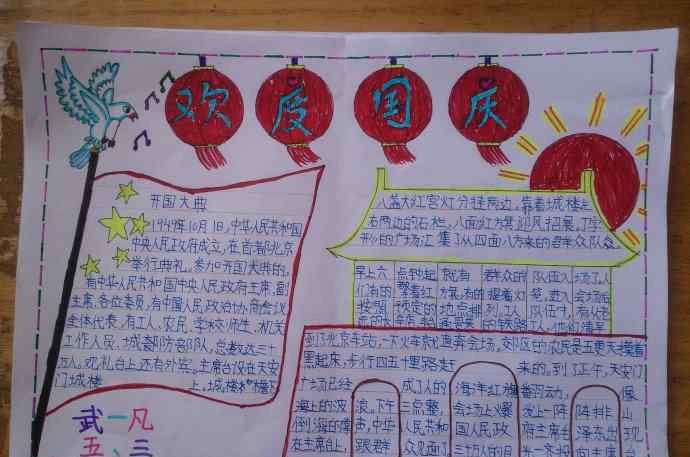 欢度国庆
开国大典
1949年10月1日,中华人民共和国
中央人民政府成立,在首都北京
举行典礼。参加开国大典的,
有中华人民共和国中央人民政府主席,副
主席,各位委员,有中国人民政治协商会议
全体代表,有工人、农民、学校师生、机关
工作人员、城防部队,总数达三十
万人。观礼台上还有外宾。主席台设在天安
门城楼上。城楼
武一凡
五、三
八盏大红宫灯分挂两边。靠着城楼左
右两边的石栏,八面红旗迎风招展。丁字
形的广场汇集了从四面八方来的群众队众
早上六点钟起就有群众的队伍入场了。人
们有的擎着红旗,有的提着灯笼,进入会场后
按照预定的地点排列。工人队伍中,有从老
到了北京车站,一下火车就直奔会场。郊区的农民是五更天摸着
黑起床,步行四五十里路赶来的。到了正午,天安门
广场已经成了人的海洋,红旗翻动,像
海上的波浪。下午三点整,会场上爆发出一阵阵排山
倒海的掌声,中华人民共和国人民政府主席毛泽东出现
在主席台上,跟群众见面了。三十万人的目光一齐投向主席台